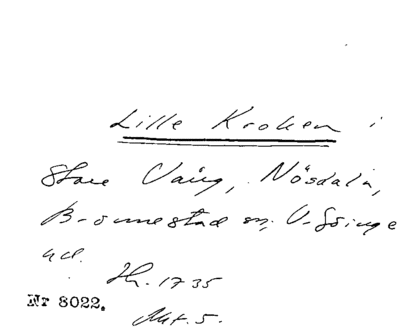 Lille Kroken i
Stare Vång, Nösdala,
Brönnestad sn, V. Göinge
hd.
Th. 1735
Nr 8022.
Akt. 5.